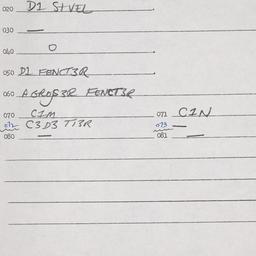 020 D1 StVEL
030 —
040 O
050 D1 FENCT3R
060 A GROβ3R FENCT3R
070 C1M 071 C1N
072 C3D3 T13R 073 —
080 — 081 —